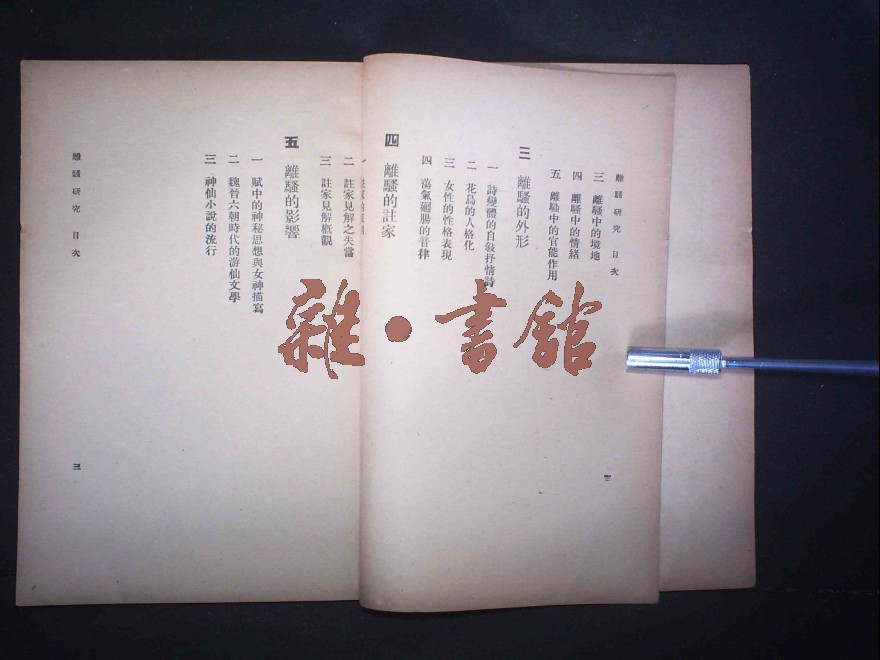 離騷研究 目次
三 離騷中的境地
四 離騷中的情緒
五 離騷中的官能作用
三 離騷的外形
一 詩變體的自敍抒情詩
二 花鳥的人格化
三 女性的性格表現
四 蕩氣廻腸的音律
四 離騷的註家
一 註家
二 註家見解之失當
三 註家見解概觀
五 離騷的影響
一 賦中的神秘思想與女神描寫
二 魏晉六朝時代的游仙文學
三 神仙小說的流行
離騷研究 目次
三
雜·書館